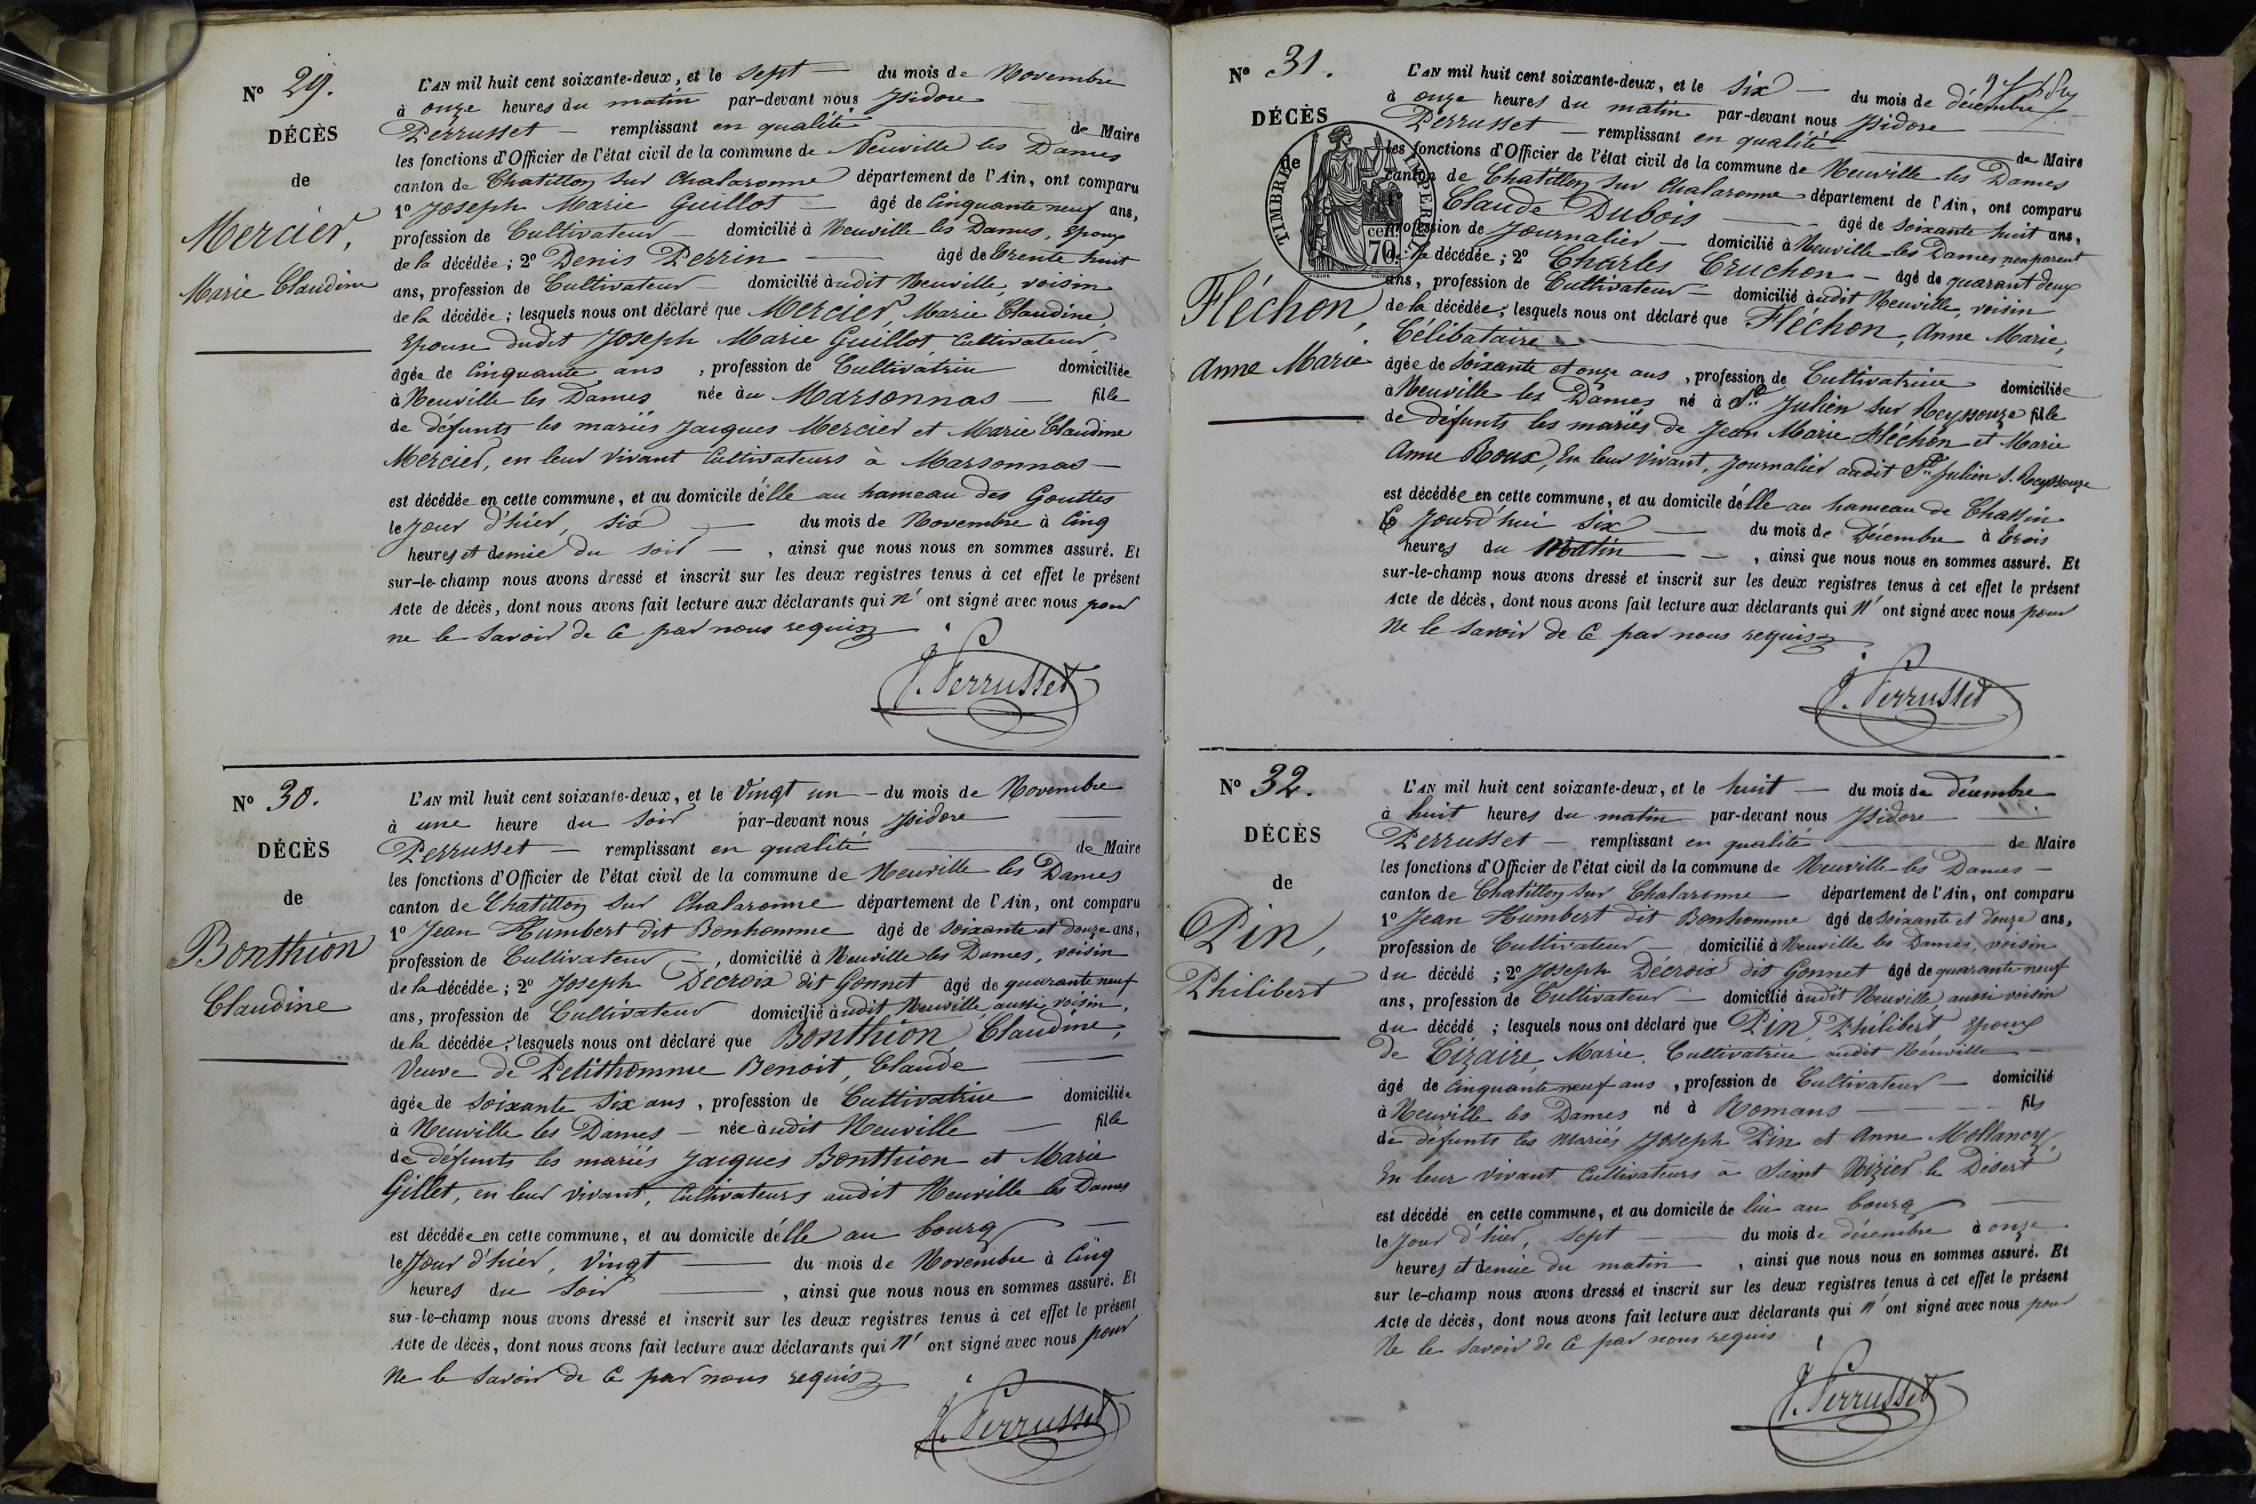 N° 29.
DÉCÈS
de
Mercier,
Marie Claudine
L'AN mil huit cent soixante-deux, et le sept du mois de Novembre
à onze heures du matin par-devant nous Isidore
Perrusset remplissant en qualité de Maire
les fonctions d'Officier de l'état civil de la commune de Neuville les Dames
canton de Chatillon sur Chalaronne département de l'Ain, ont comparu
1° Joseph Marie Guillot âgé de Cinquante neuf ans,
profession de Cultivateur domicilié à Neuville les Dames, Epoux
de la décédée; 2° Denis Perrin âgé de trente huit
ans, profession de Cultivateur domicilié audit Neuville, voisin
de la décédée; lesquels nous ont déclaré que Mercier Marie Claudine,
Epouse dudit Joseph Marie Guillot Cultivateur
âgée de Cinquante ans, profession de Cultivatrice domiciliée
à Neuville les Dames née au Marsonnas fille
de défunts les mariés Jacques Mercier et Marie Claudine
Mercier, en leur vivant Cultivateurs à Marsonnas
est décédée en cette commune, et au domicile d'elle au hameau des Gouttes
le jour d'hier, six du mois de Novembre à Cinq
heures et demie du soir, ainsi que nous nous en sommes assuré. Et
sur-le-champ nous avons dressé et inscrit sur les deux registres tenus à cet effet le présent
Acte de décès, dont nous avons fait lecture aux déclarants qui n'ont signé avec nous pour
ne le savoir de ce par nous requis
J. Perrusset
N° 30.
DÉCÈS
de
Bonthion
Claudine
L'AN mil huit cent soixante-deux, et le Vingt un du mois de Novembre
à une heure du soir par-devant nous Isidore
Perrusset remplissant en qualité de Maire
les fonctions d'Officier de l'état civil de la commune de Neuville les Dames
canton de Chatillon sur Chalaronne département de l'Ain, ont comparu
1° Jean Humbert dit Bonhomme âgé de soixante et douze ans,
profession de Cultivateur, domicilié à Neuville les Dames, voisin
de la décédée; 2° Joseph Décroix dit Gonnet âgé de quarante neuf
ans, profession de Cultivateur domicilié audit Neuville, aussi voisin,
de la décédée, lesquels nous ont déclaré que Bonthion Claudine,
Veuve de Petithomme Benoit, Claude
âgée de soixante six ans, profession de Cultivatrice domiciliée
à Neuville les Dames née audit Neuville fille
de défunts les mariés Jacques Bonthion et Marie
Gillet, en leur vivant, Cultivateurs audit Neuville les Dames
est décédée en cette commune, et au domicile d'elle au bourg
le Jour d'hier, Vingt du mois de Novembre à Cinq
heures du soir, ainsi que nous nous en sommes assuré. Et
sur-le-champ nous avons dressé et inscrit sur les deux registres tenus à cet effet le présent
Acte de décès, dont nous avons fait lecture aux déclarants qui n'ont signé avec nous pour
Ne le savoir de ce par nous requis
J. Perrusset
N° 31.
DÉCÈS
de
TIMBRE IMPERIAL
70 cent.
Fléchon,
Anne Marie
L'AN mil huit cent soixante-deux, et le six du mois de décembre
à onze heures du matin par-devant nous Isidore
Perrusset remplissant en qualité de Maire
les fonctions d'Officier de l'état civil de la commune de Neuville les Dames
canton de Chatillon sur Chalaronne département de l'Ain, ont comparu
1° Claude Dubois âgé de soixante huit ans,
profession de Journalier domicilié à Neuville les Dames, non parent
de la décédée; 2° Charles Cruchon âgé de quarant deux
ans, profession de Cultivateur domicilié audit Neuville, voisin
de la décédée; lesquels nous ont déclaré que Fléchon, Anne Marie,
Célibataire
âgée de soixante et onze ans, profession de Cultivatrice domiciliée
à Neuville les Dames né à St Julien sur Reyssouze fille
de défunts les mariés de Jean Marie Fléchon et Marie
Anne Roux, En leur vivant, journalier audit St Julien s. Reyssouze
est décédée en cette commune, et au domicile d'elle au hameau de Chassin
Ce Jourd'hui six du mois de Décembre à trois
heures du Matin, ainsi que nous nous en sommes assuré. Et
sur-le-champ nous avons dressé et inscrit sur les deux registres tenus à cet effet le présent
Acte de décès, dont nous avons fait lecture aux déclarants qui N'ont signé avec nous pour
Ne le savoir de ce par nous requis
J. Perrusset
N° 32.
DÉCÈS
de
Pin,
Philibert
L'AN mil huit cent soixante-deux, et le huit du mois de décembre
à huit heures du matin par-devant nous Isidore
Perrusset remplissant en qualité de Maire
les fonctions d'Officier de l'état civil de la commune de Neuville les Dames
canton de Chatillon sur Chalaronne département de l'Ain, ont comparu
1° Jean Humbert dit Bonhomme âgé de soixante et douze ans,
profession de Cultivateur domicilié à Neuville les Dames, voisin
du décédé; 2° Joseph Décroix dit Gonnet âgé de quarante neuf
ans, profession de Cultivateur domicilié audit Neuville, aussi voisin
du décédé; lesquels nous ont déclaré que Pin, Philibert Epoux
de Cizaire, Marie, Cultivatrice audit Neuville
âgé de Cinquante neuf ans, profession de Cultivateur domicilié
à Neuville les Dames né à Romans fils
de défunts les mariés Joseph Pin et Anne
En leur vivant Cultivateurs à Saint Nizier le Désert
est décédé en cette commune, et au domicile de lui au bourg
le Jour d'hier, sept du mois de décembre à onze
heures et demie du matin, ainsi que nous nous en sommes assuré. Et
sur le-champ nous avons dressé et inscrit sur les deux registres tenus à cet effet le présent
Acte de décès, dont nous avons fait lecture aux déclarants qui n'ont signé avec nous pour
Ne le savoir de ce par nous requis
J. Perrusset